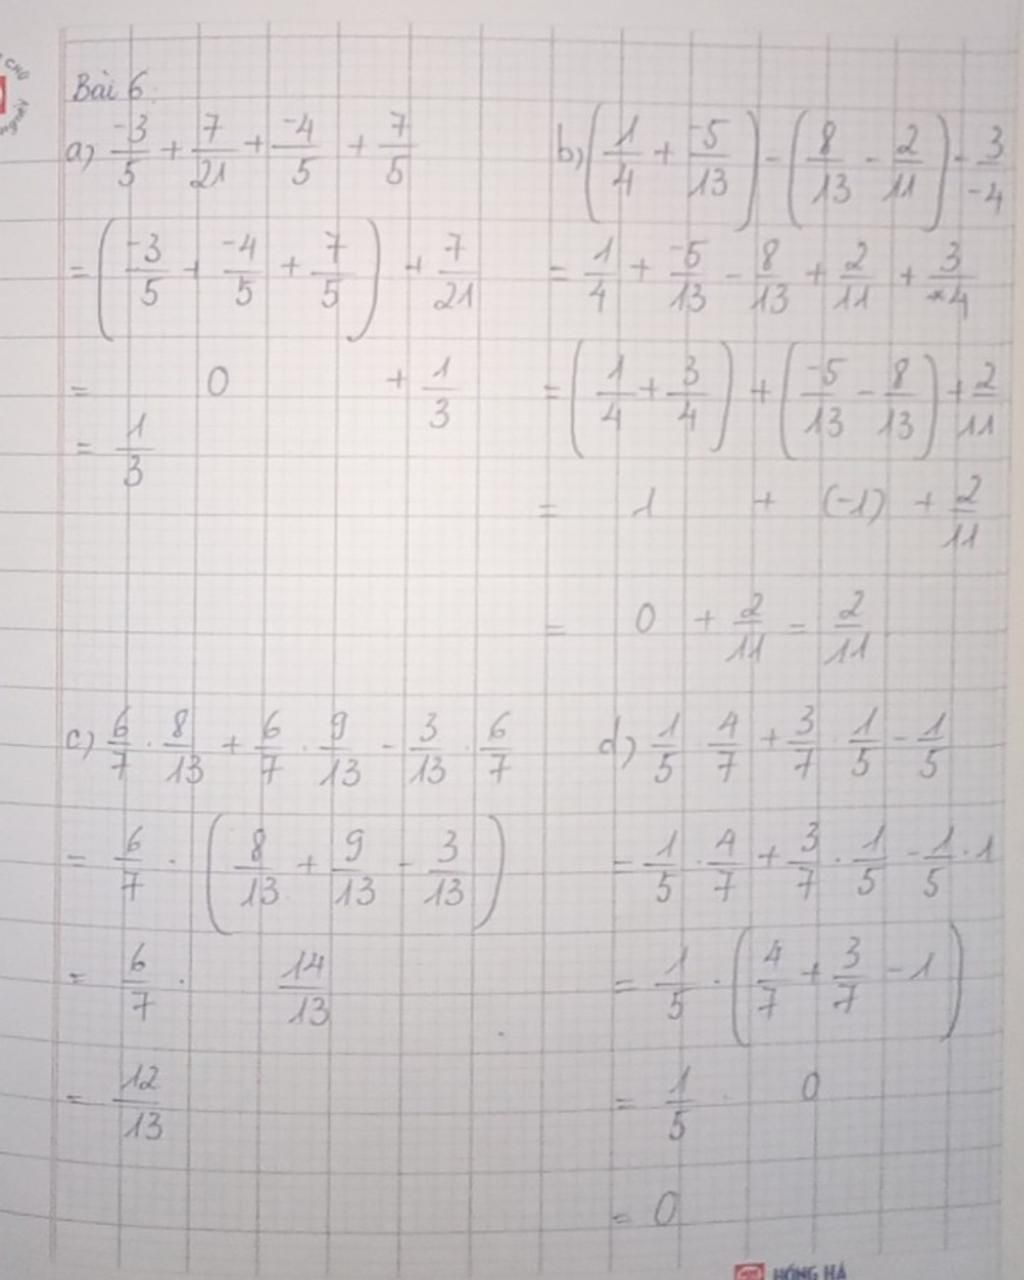 Bài 6.
a) -3/5 + 7/21 + -4/5 + 7/5
= (-3/5 + -4/5 + 7/5) + 7/21
= 0 + 1/3
= 1/3
b) (1/4 + -5/13) - (8/13 - 2/11) - 3/-4
= 1/4 + -5/13 - 8/13 + 2/11 + 3/4
= (1/4 + 3/4) + (-5/13 - 8/13) + 2/11
= 1 + (-1) + 2/11
= 0 + 2/11 = 2/11
c) 6/7 . 8/13 + 6/7 . 9/13 - 3/13 . 6/7
= 6/7 . (8/13 + 9/13 - 3/13)
= 6/7 . 14/13
= 12/13
d) 1/5 . 4/7 + 3/7 . 1/5 - 1/5
= 1/5 . 4/7 + 3/7 . 1/5 - 1/5 . 1
= 1/5 . (4/7 + 3/7 - 1)
= 1/5 . 0
= 0
HỒNG HÀ